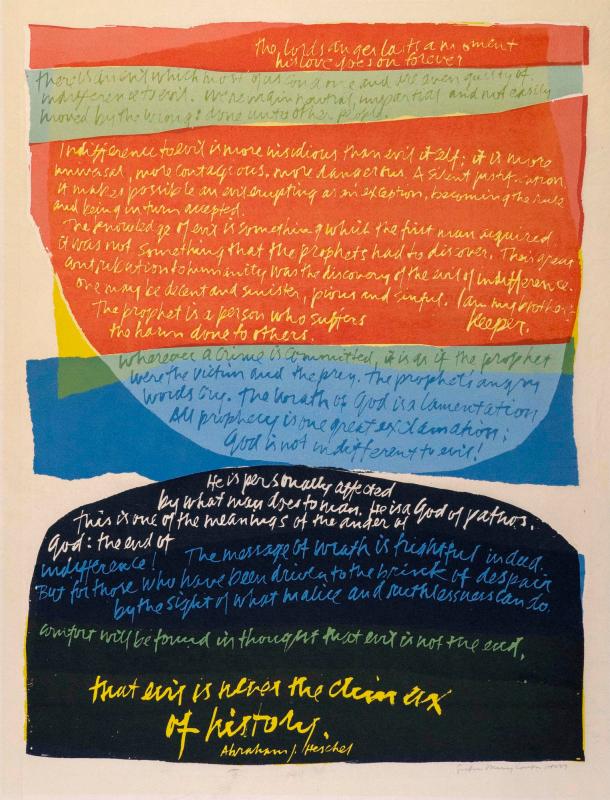 the lords anger lasts a moment
his love goes on forever
there is an evil which most of us condone and are even guilty of.
indifference to evil. We remain neutral, impartial and not easily
moved by the wrongs done unto other people.
Indifference to evil is more insidious than evil itself; it is more
universal, more contagious, more dangerous. A silent justification,
it makes possible an evil erupting as an exception, becoming the rule
and being in turn accepted.
The knowledge of evil is something which the first man acquired.
it was not something that the prophets had to discover. Their great
contribution to humanity was the discovery of the evil of indifference.
one may be decent and sinister, pious and sinful. I am my brother's
keeper.
The prophet is a person who suffers
the harm done to others.
wherever a crime is committed, it is as if the prophet
were the victim and the prey. The prophet's angry
words cry. The wrath of God is a lamentation
All prophecy is one great exclamation:
God is not indifferent to evil!
He is personally affected
by what man does to man. He is a God of pathos.
this is one of the meanings of the anger of
God: the end of
indifference! The message of wrath is frightful indeed.
But for those who have been driven to the brink of despair
by the sight of what malice and ruthlessness can do.
comfort will be found in thought that evil is not the end,
that evil is never the climax
of history.
Abraham J. Heschel